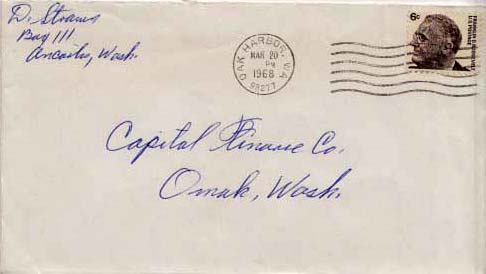 D. Straws
Box 111
Anacortes, Wash.
OAK HARBOR, WA
MAR 20
PM
1968
98277
6c
FRANKLIN D. ROOSEVELT
U.S. POSTAGE
Capital Finance Co.
Omak, Wash.